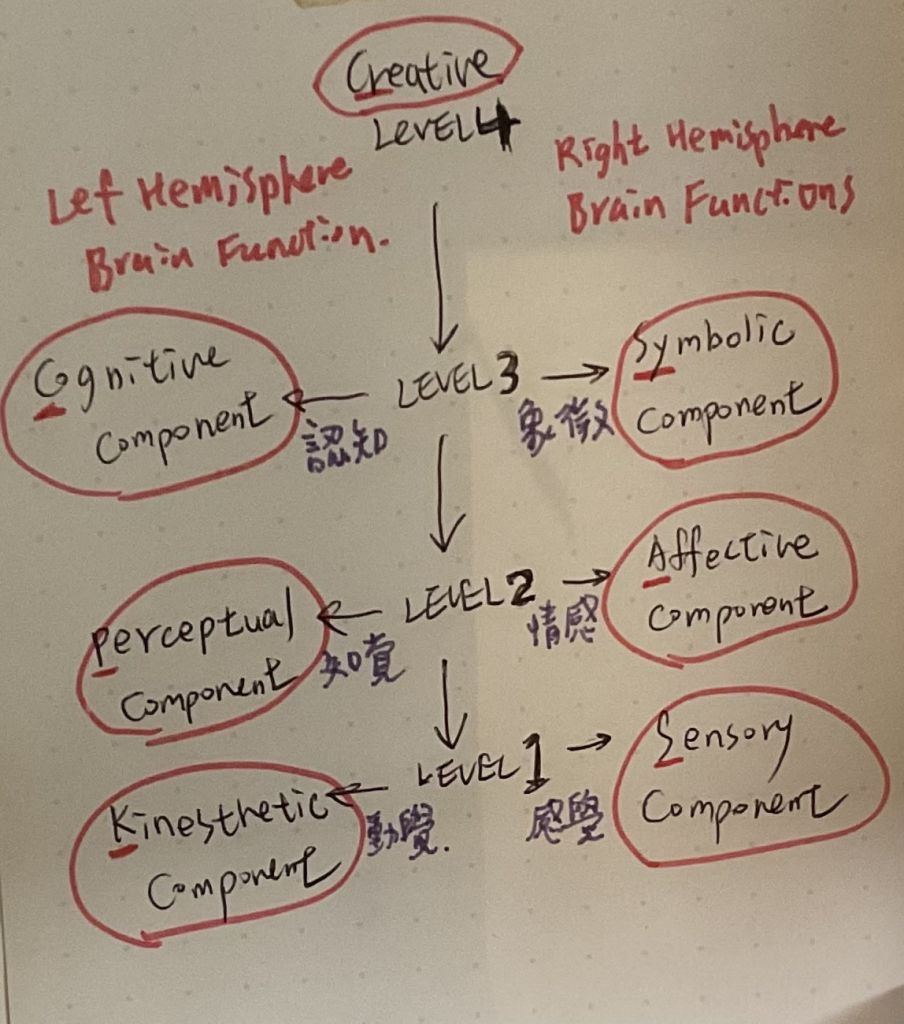 Creative
LEVEL4
Left Hemisphere
Brain Function.
Right Hemisphere
Brain Functions
Cognitive
Component
認知
LEVEL 3
象徵
Symbolic
Component
Perceptual
Component
知覚
LEVEL2
情感
Affective
Component
Kinesthetic
Component
動覺.
LEVEL1
感覺
Sensory
Component